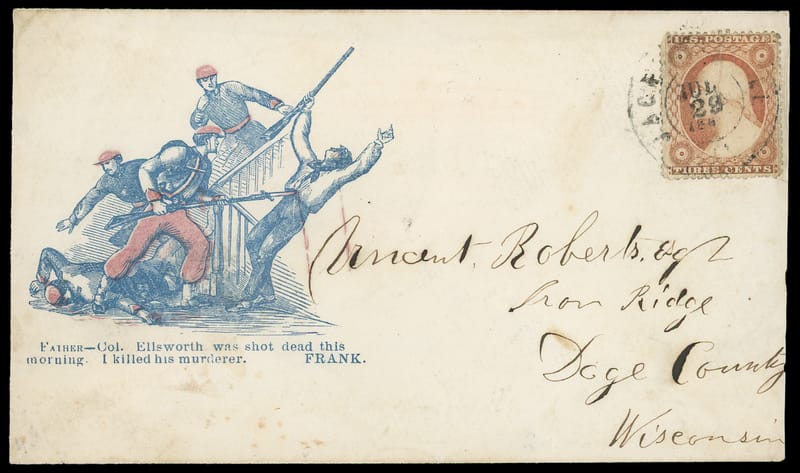 U.S. POSTAGE
JUL
29
THREE CENTS
FATHER—Col. Ellsworth was shot dead this
morning. I killed his murderer. FRANK.
Vincent Roberts, Esqr
Iron Ridge
Doge County
Wisconsin